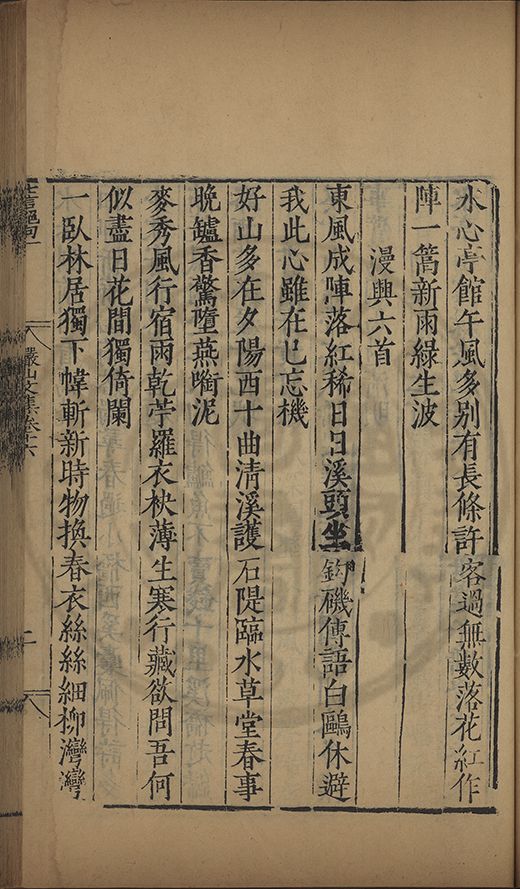 水心亭館午風多別有長條許客過無數落花紅作
陣一篙新雨綠生波
漫興六首
東風成陣落紅稀日日溪頭坐釣磯傳語白鷗休避
我此心雖在已忘機
好山多在夕陽西十曲清溪護石隄臨水草堂春事
晚罏香驚墮燕喃泥
麥秀風行宿雨乾苧羅衣袂薄生寒行藏欲問吾何
似盡日花間獨倚闌
一臥林居獨下幃斬新時物換春衣絲絲細柳灣灣
儼山文集卷十六
二